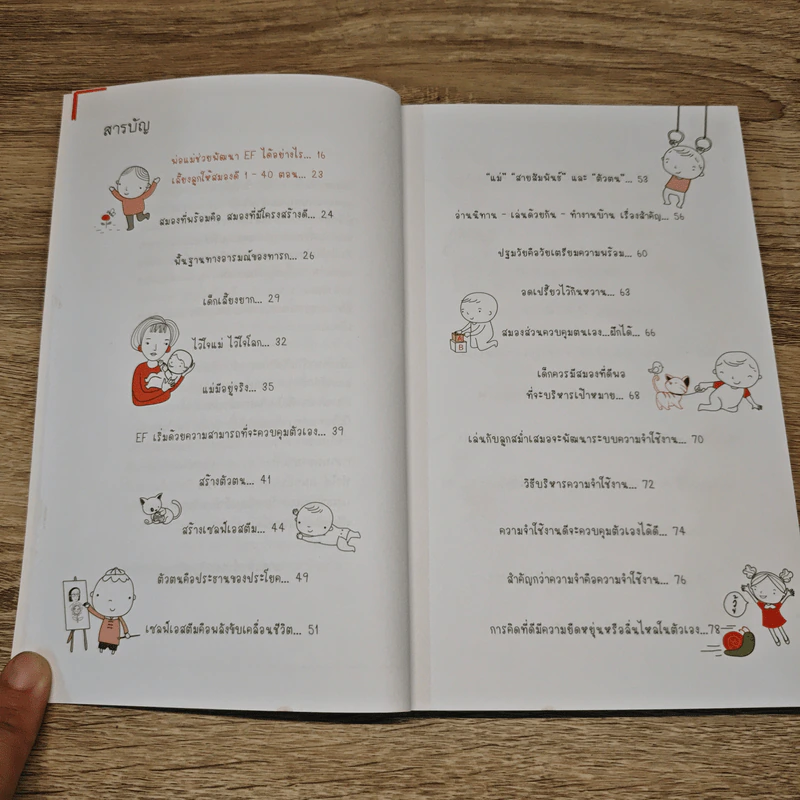 สารบัญ
พ่อแม่ช่วยพัฒนา EF ได้อย่างไร... 16
เลี้ยงลูกให้สมองดี 1 - 40 ตอน... 23
สมองที่พร้อมคือ สมองที่มีโครงสร้างดี... 24
พื้นฐานทางอารมณ์ของทารก... 26
เด็กเลี้ยงยาก... 29
ไว้ใจแม่ ไว้ใจโลก... 32
แม่มีอยู่จริง... 35
EF เริ่มด้วยความสามารถที่จะควบคุมตัวเอง... 39
สร้างตัวตน... 41
สร้างเซลฟ์เอสตีม... 44
ตัวตนคือประธานของประโยค... 49
เซลฟ์เอสตีมคือพลังขับเคลื่อนชีวิต... 51
"แม่" "สายสัมพันธ์" และ "ตัวตน"... 53
อ่านนิทาน - เล่นด้วยกัน - ทำงานบ้าน เรื่องสำคัญ... 56
ปฐมวัยคือวัยเตรียมความพร้อม... 60
อดเปรี้ยวไว้กินหวาน... 63
สมองส่วนควบคุมตนเอง...ฝึกได้... 66
B
เด็กควรมีสมองที่ดีพอ
ที่จะบริหารเป้าหมาย... 68
เล่นกับลูกสม่ำเสมอจะพัฒนาระบบความจำใช้งาน... 70
วิธีบริหารความจำใช้งาน... 72
ความจำใช้งานดีจะควบคุมตัวเองได้ดี... 74
สำคัญกว่าความจำคือความจำใช้งาน... 76
การคิดที่ดีมีความยืดหยุ่นหรือลื่นไหลในตัวเอง...78